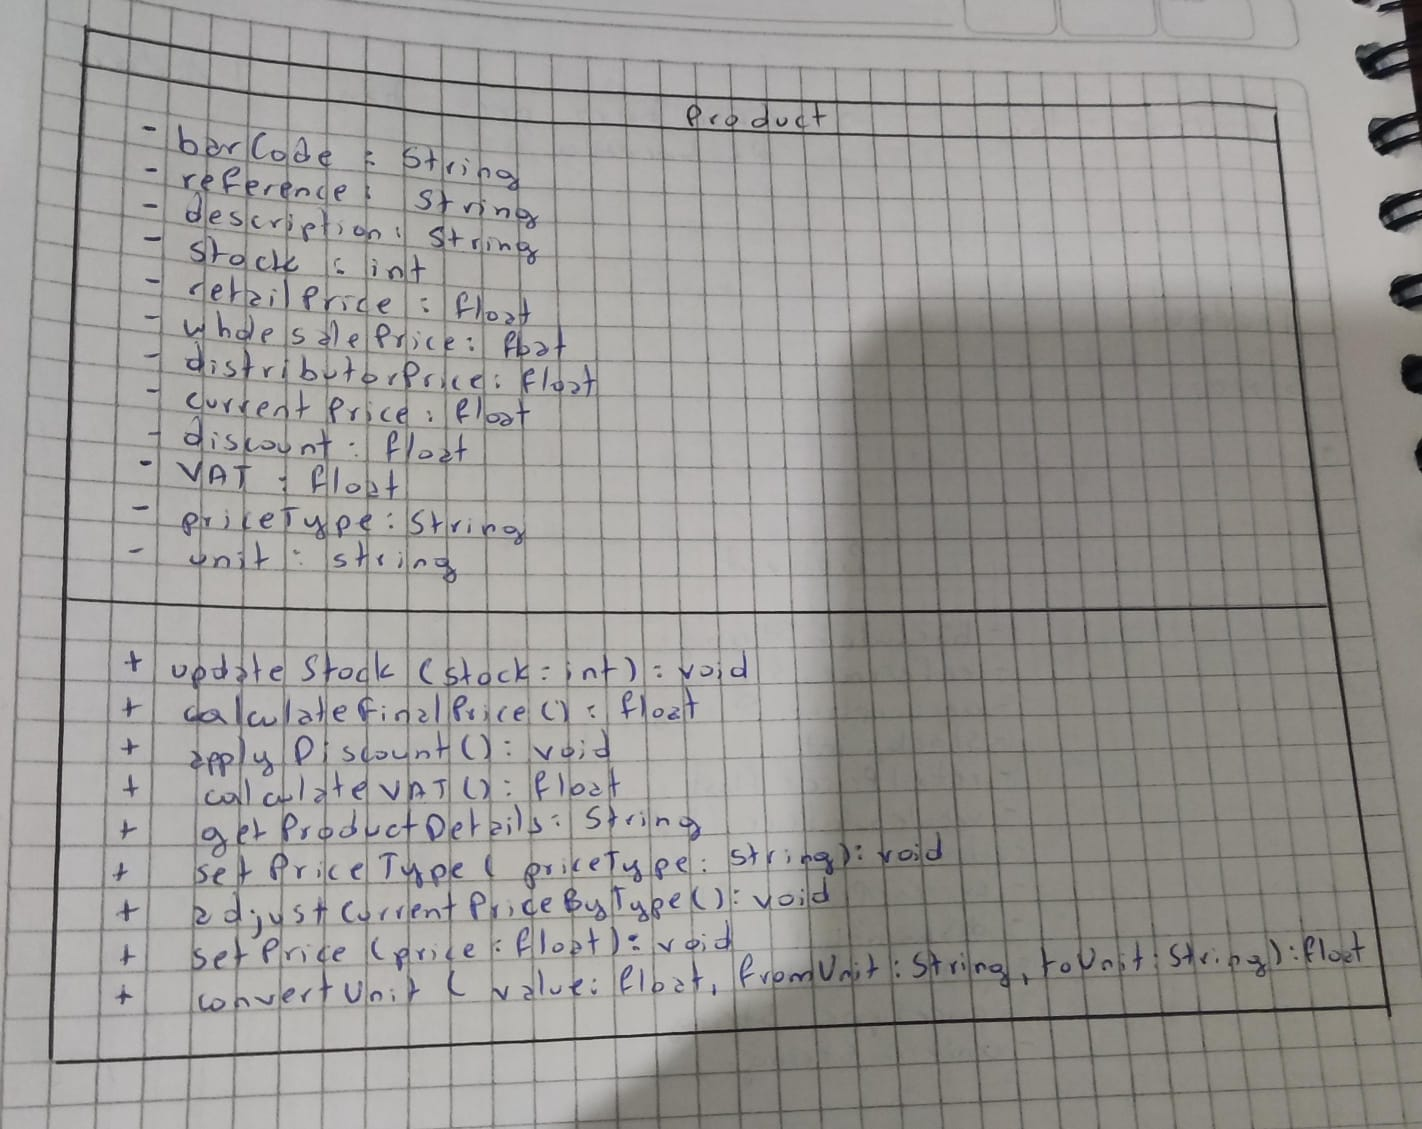 Product
- barCode : String
- reference : String
- description : String
- stock : int
- retailPrice : float
- wholesalePrice : float
- distributorPrice : float
- currentPrice : float
- discount : float
- VAT : float
- priceType : String
- unit : string
+ updateStock (stock : int) : void
+ calculateFinalPrice () : float
+ applyDiscount () : void
+ calculateVAT () : float
+ getProductDetails : String
+ setPriceType ( priceType : string) : void
+ adjustCurrentPriceByType () : void
+ setPrice (price : float) : void
+ convertUnit ( value : float, fromUnit : String, toUnit : String) : float